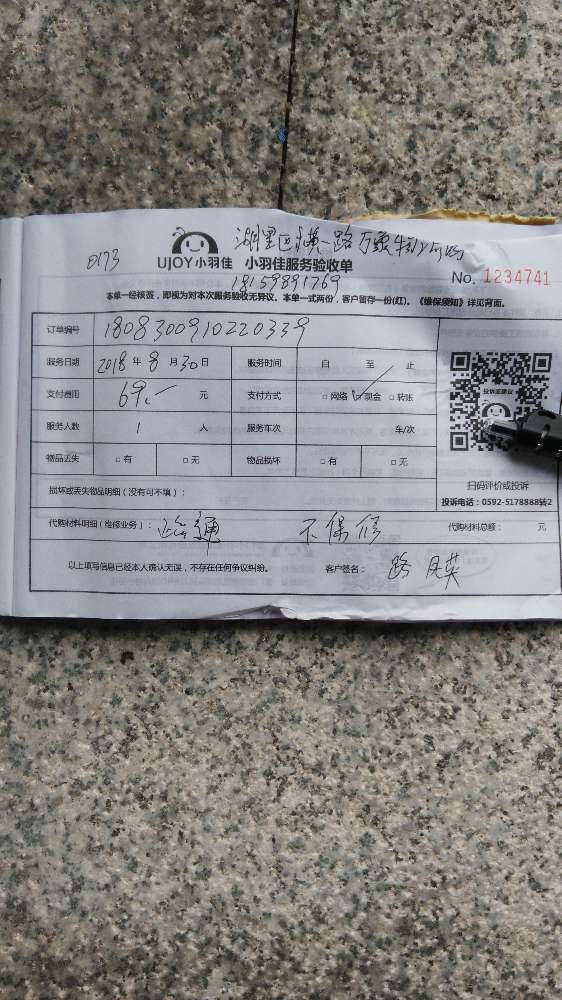 湖里区
0173
UJOY小羽佳 小羽佳服务验收单
18159891769
No. 1234741
本单一经核签，即视为对本次服务验收无异议。本单一式两份，客户留存一份(红)。《维保须知》详见背面。
订单编号 1808300910220339
服务日期 2018 年 8 月 30 日 服务时间 自 至 止
支付费用 69.- 元 支付方式 □ 网络 ☑ 现金 □ 转账
服务人数 1 人 服务车次 车/次
物品丢失 □ 有 □ 无 物品损坏 □ 有 □ 无
投诉或建议
扫码评价或投诉
投诉电话：0592-5178888转2
损坏或丢失物品明细（没有可不填）：
代购材料明细（维修业务）： 通 不保修 代购材料总额： 元
以上填写信息已经本人确认无误，不存在任何争议纠纷。 客户签名： 路月英